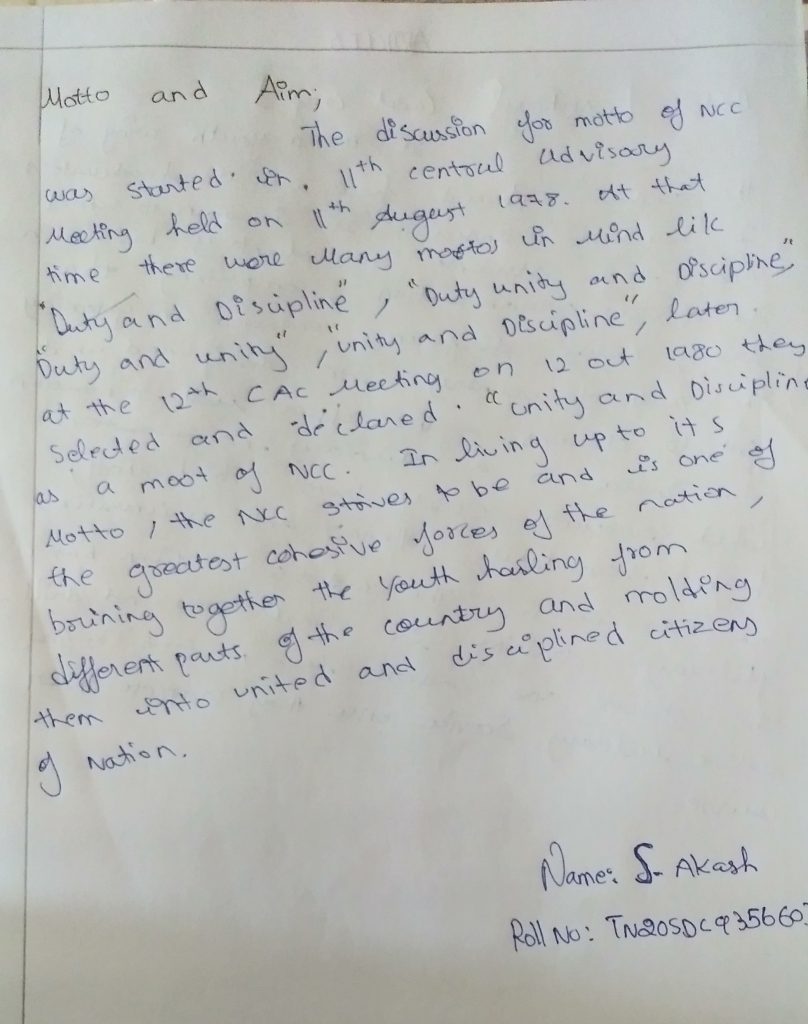 Motto and Aim;
The discussion for motto of NCC
was started in 11th central advisory
Meeting held on 11th August 1978. At that
time there were Many mottos in Mind lik
"Duty and Discipline", "Duty unity and Discipline",
"Duty and unity", "unity and Discipline", later
at the 12th CAC Meeting on 12 oct 1980 they
selected and declared. "unity and Discipline
as a moot of NCC. In living up to its
Motto, the NCC strives to be and is one of
the greatest cohesive forces of the nation,
brining together the Youth hasling from
different parts of the country and molding
them into united and disciplined citizens
of Nation.
Name: S. Akash
Roll No: TN20SDC9356603